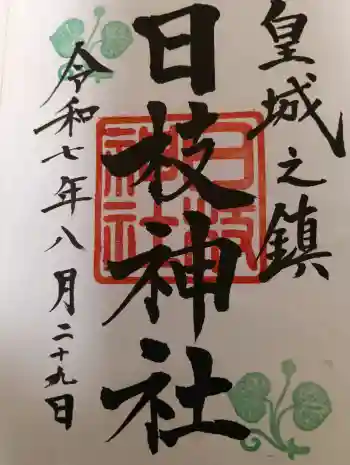 皇城之鎮
日枝神社
日枝神社
令和七年八月二十九日